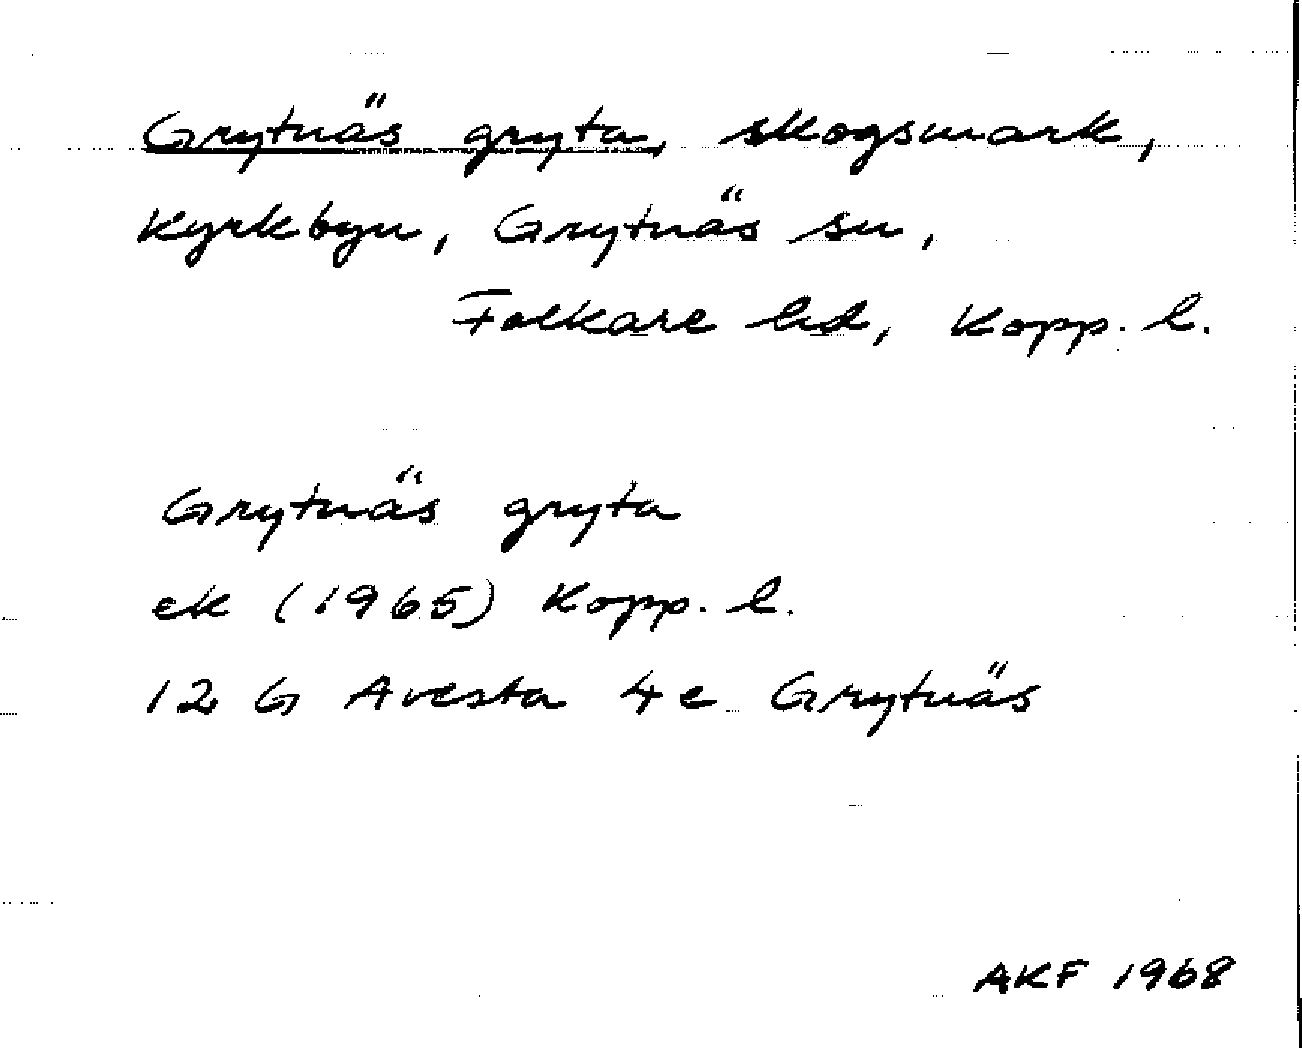 Grytnäs gryta, skogsmark,
Kyrkbyn, Grytnäs sn,
Folkare hd, Kopp. l.
Grytnäs gryta
ek (1965) Kopp. l.
12 G Avesta 4e Grytnäs
AKF 1968